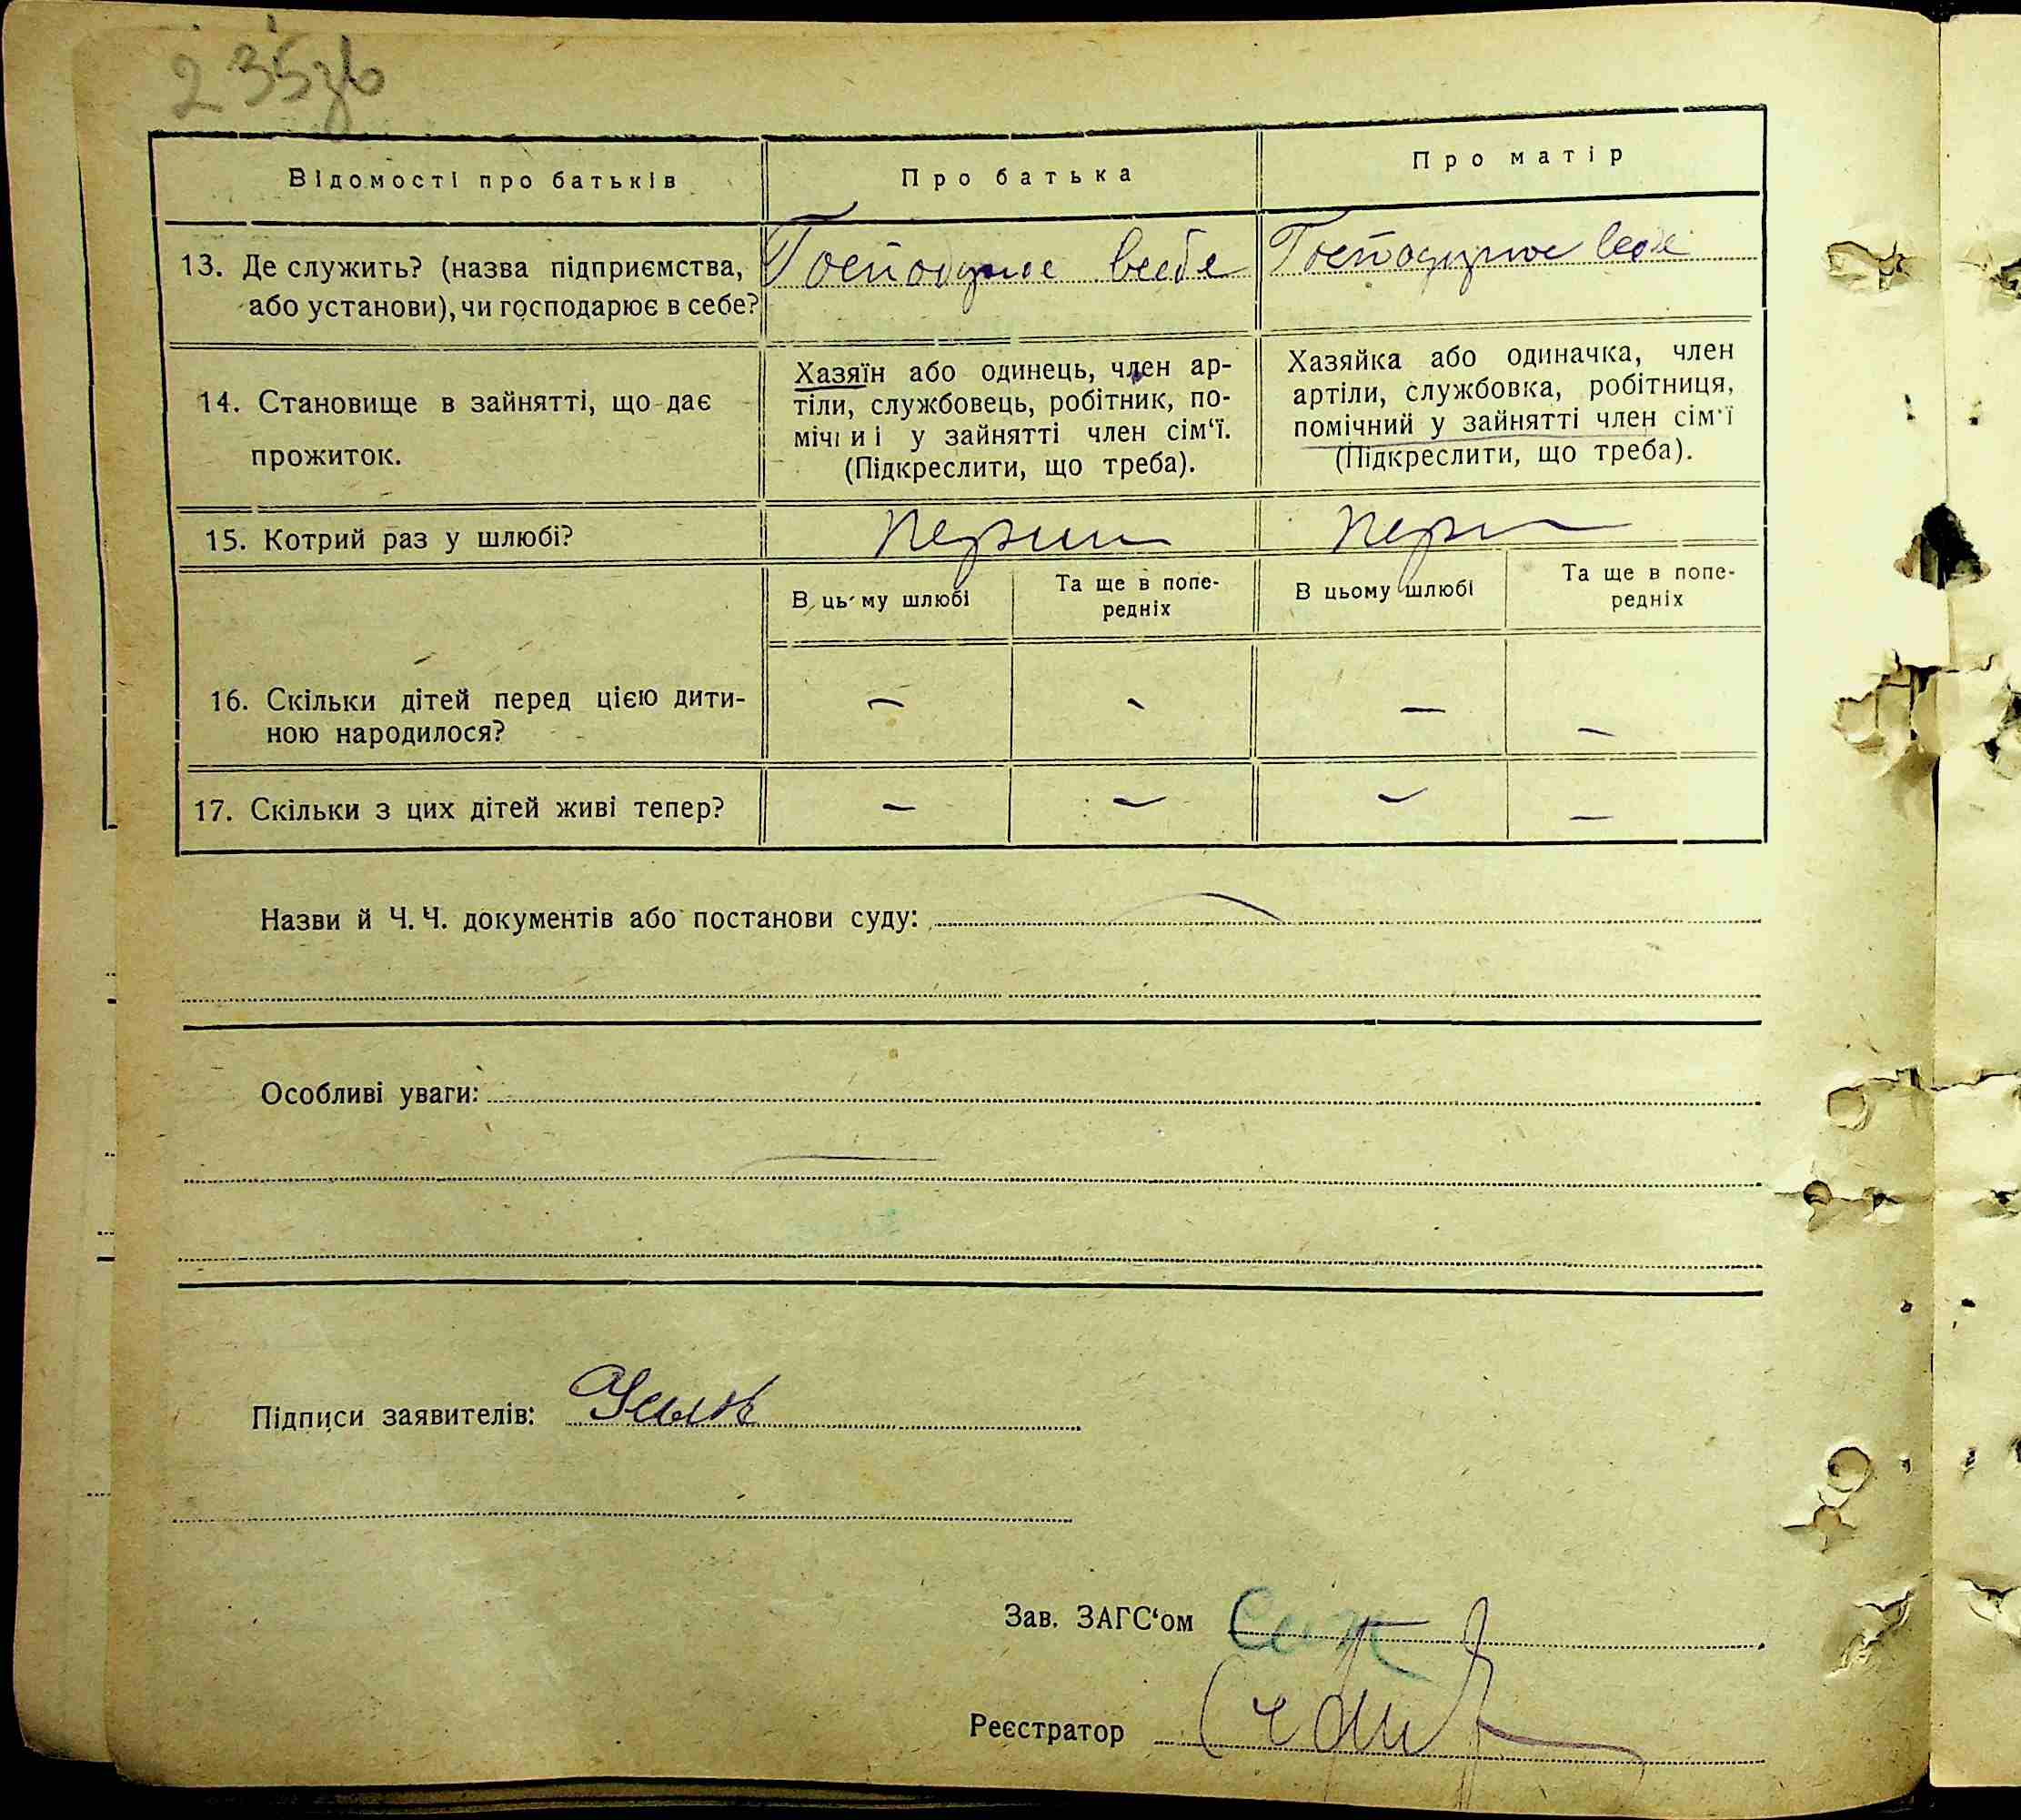 235зв
Відомості про батьків
Про батька
Про матір
13. Де служить? (назва підприємства,
або установи), чи господарює в себе?
Господарює в себе
Господарює в себе
14. Становище в зайнятті, що дає
прожиток.
Хазяїн або одинець, член ар-
тіли, службовець, робітник, по-
мічний у зайнятті член сім'ї.
(Підкреслити, що треба).
Хазяйка або одиначка, член
артіли, службовка, робітниця,
помічний у зайнятті член сім'ї
(Підкреслити, що треба).
15. Котрий раз у шлюбі?
Перший
В цьому шлюбі
Та ще в попе-
редніх
В цьому шлюбі
Та ще в попе-
редніх
16. Скільки дітей перед цією дити-
ною народилося?
— — — —
17. Скільки з цих дітей живі тепер?
— — — —
Назви й Ч. Ч. документів або постанови суду: —
Особливі уваги:
—
Підписи заявителів:
Зав. ЗАГС'ом
Реєстратор